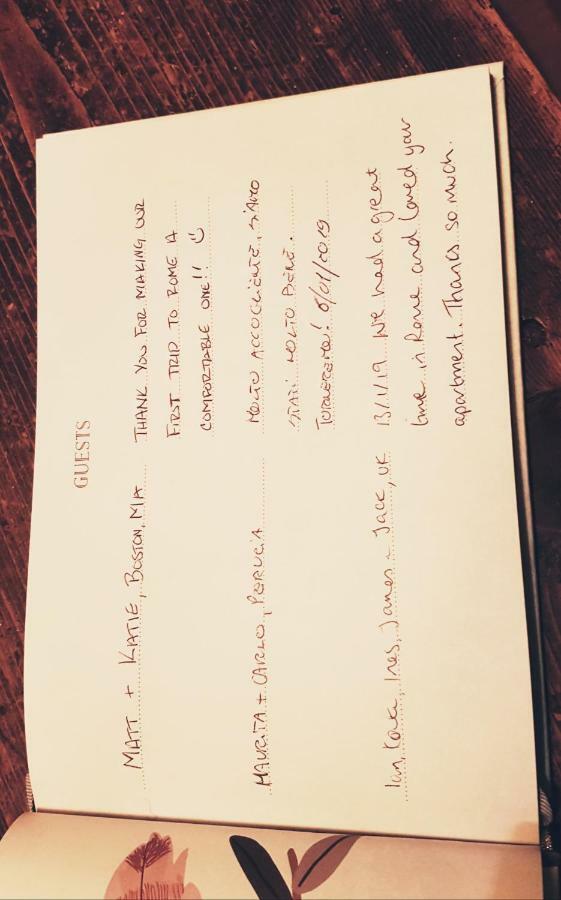 GUESTS
MATT + KATIE, BOSTON, MA THANK YOU FOR MAKING OUR
FIRST TRIP TO ROME A
COMFORTABLE ONE!! ☺
MAURITA + CARLO, PERUGIA MOLTO ACCOGLIENTE, SIAMO
STATI MOLTO BENE.
TORNEREMO! 6/01/2019
Ian, Ines, James - Jack, UK 13/1/19 We had a great
time in Rome and loved your
apartment. Thanks so much.